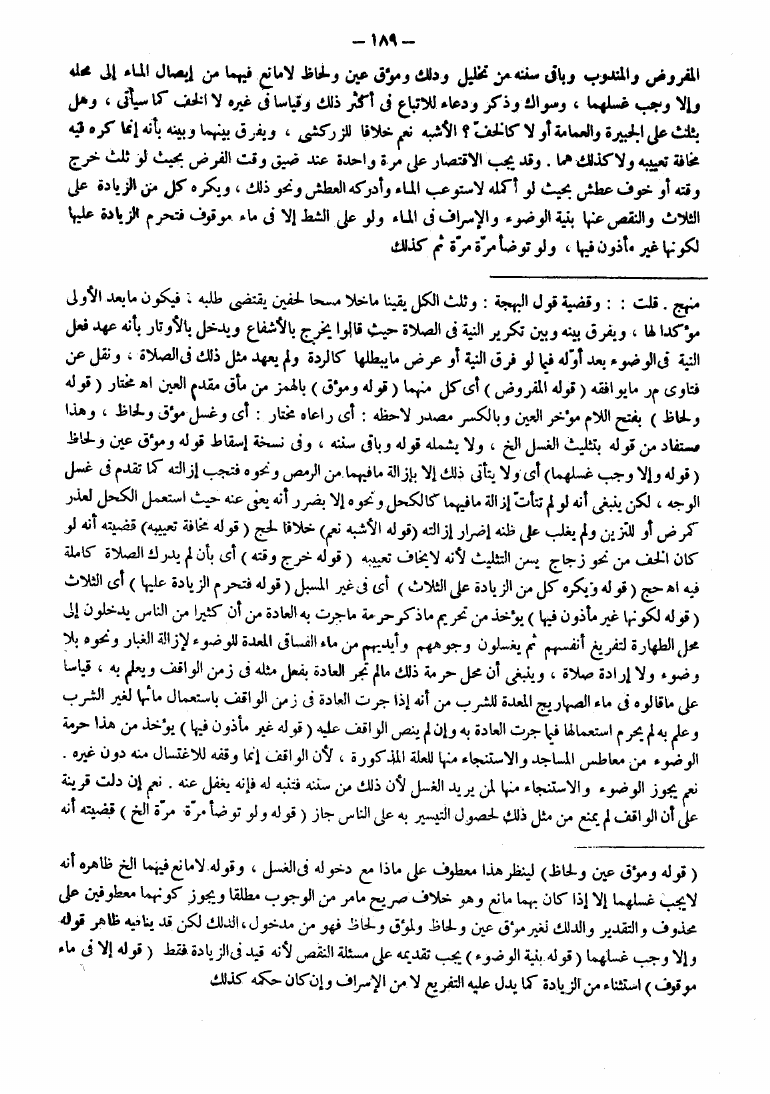 — ١٨٩ —
المفروض والمندوب وباقى سننه من تخليل ودلك وموْق عين ولحاظ لامانع فيهما من إيصال المـاء إلى محله
وإلا وجب غسلهما ، وسواك وذكر ودعاء للاتباع فى أكثر ذلك وقياسا فى غيره لا الخف كما سيأتى ، وهل
يثلث على الجبيرة والعمامة أو لا كالخف ؟ الأشبه نعم خلافا للزركشى ، ويفرق بينهما وبينه بأنه إنما كره فيه
مخافة تعييبه ولا كذلك هما . وقد يجب الاقتصار على مرة واحدة عند ضيق وقت الفرض بحيث لو ثلث خرج
وقته أو خوف عطش بحيث لو أكمله لاستوعب المـاء وأدركه العطش ونحو ذلك ، ويكره كل من الزيادة على
الثلاث والنقص عنها بنية الوضوء والإسراف فى المـاء ولو على الشط إلا فى ماء موقوف فتحرم الزيادة عليها
لكونها غير مأذون فيها ، ولو توضأ مرّة مرّة ثم كذلك
منهج . قلت : : وقضية قول البهجة : وثلث الكل يقينا ماخلا مسحا لخفين يقتضى طلبه ، فيكون مابعد الأولى
موٌكدا لها ، ويفرق بينه وبين تكرير النية فى الصلاة حيث قالوا يخرج بالأشفاع ويدخل بالأوتار بأنه عهد فعل
النية فى الوضوء بعد أوّله فيما لو فرق النية أو عرض مايبطلها كالردة ولم يعهد مثل ذلك فى الصلاة ، ونقل عن
فتاوى مر مايوافقه ( قوله المفروض ) أى كل منهما ( قوله وموْق ) بالهمز من مأق مقدم العين اه مختار ( قوله
ولحاظ ) بفتح اللام موْخر العين وبالكسر مصدر لاحظه : أى راعاه مختار : أى وغسل موْق ولحاظ ، وهذا
مستفاد من قوله بتثليث الغسل الخ ، ولا يشمله قوله وباقى سننه ، وفى نسخة إسقاط قوله وموْق عين ولحاظ
( قوله وإلا وجب غسلهما) أى ولا يتأتى ذلك إلا بإزالة مافيهما من الرمص ونحوه فتجب إزالته كما تقدم فى غسل
الوجه ، لكن ينبغى أنه لو لم تتأت إزالة مافيهما كالكحل ونحوه إلا بضرر أنه يعفى عنه حيث استعمل الكحل لعذر
كمرض أو للتزين ولم يغلب على ظنه إضرار إزالته (قوله الأشبه نعم) خلافا لحج ( قوله مخافة تعييبه) قضيته أنه لو
كان الخف من نحو زجاج يسن التثليث لأنه لايخاف تعييبه ( قوله خرج وقته ) أى بأن لم يدرك الصلاة كاملة
فيه اه حج ( قوله ويكره كل من الزيادة على الثلاث ) أى فى غير المسبل ( قوله فتحرم الزيادة عليها ) أى الثلاث
( قوله لكونها غير مأذون فيها ) يوٌخذ من تحريم ماذكر حرمة ماجرت به العادة من أن كثيرا من الناس يدخلون إلى
محل الطهارة لتفريغ أنفسهم ثم يغسلون وجوههم وأيديهم من ماء الفساقى المعدة للوضوء لإزالة الغبار ونحوه بلا
وضوء ولا إرادة صلاة ، وينبغى أن محل حرمة ذلك مالم تجر العادة بفعل مثله فى زمن الواقف ويعلم به ، قياسا
على ماقالوه فى ماء الصهاريج المعدة للشرب من أنه إذا جرت العادة فى زمن الواقف باستعمال مائها لغير الشرب
وعلم به لم يحرم استعمالها فيما جرت العادة به وإن لم ينص الواقف عليه ( قوله غير مأذون فيها ) يوٌخذ من هذا حرمة
الوضوء من معاطس المساجد والاستنجاء منها للعلة المذكورة ، لأن الواقف إنما وقفه للاغتسال منه دون غيره .
نعم يجوز الوضوء والاستنجاء منها لمن يريد الغسل لأن ذلك من سننه فتنبه له فإنه يغفل عنه . نعم إن دلت قرينة
على أن الواقف لم يمنع من مثل ذلك لحصول التيسير به على الناس جاز ( قوله ولو توضأ مرّة مرّة الخ ) قضيته أنه
( قوله وموْق عين ولحاظ) لينظر هذا معطوف على ماذا مع دخوله فى الغسل ، وقوله لامانع فيهما الخ ظاهره أنه
لايجب غسلهما إلا إذا كان بهما مانع وهو خلاف صريح مامر من الوجوب مطلقا ويجوز كونهما معطوفين على
محذوف والتقدير والدلك لغير موْق عين ولحاظ ولموْق ولحاظ فهو من مدخول، الدلك لكن قد ينافيه ظاهر قوله
وإلا وجب غسلهما ( قوله بنية الوضوء ) يجب تقديمه على مسئلة النقص لأنه قيد فى الزيادة فقط ( قوله إلا فى ماء
موقوف ) استثناء من الزيادة كما يدل عليه التفريع لا من الإسراف وإن كان حكمه كذلك